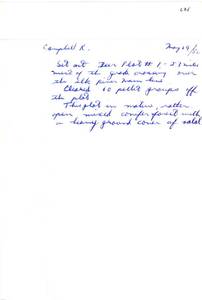 Campbell R. May 19/52
Set out Deer Plot # 1 - 2.3 miles
of the creek crossing over
the elk river main line
Cleared 10 pellet groups off
the plot
This plot in mature, rather
open mixed conifer forest with
a heavy ground cover of salal